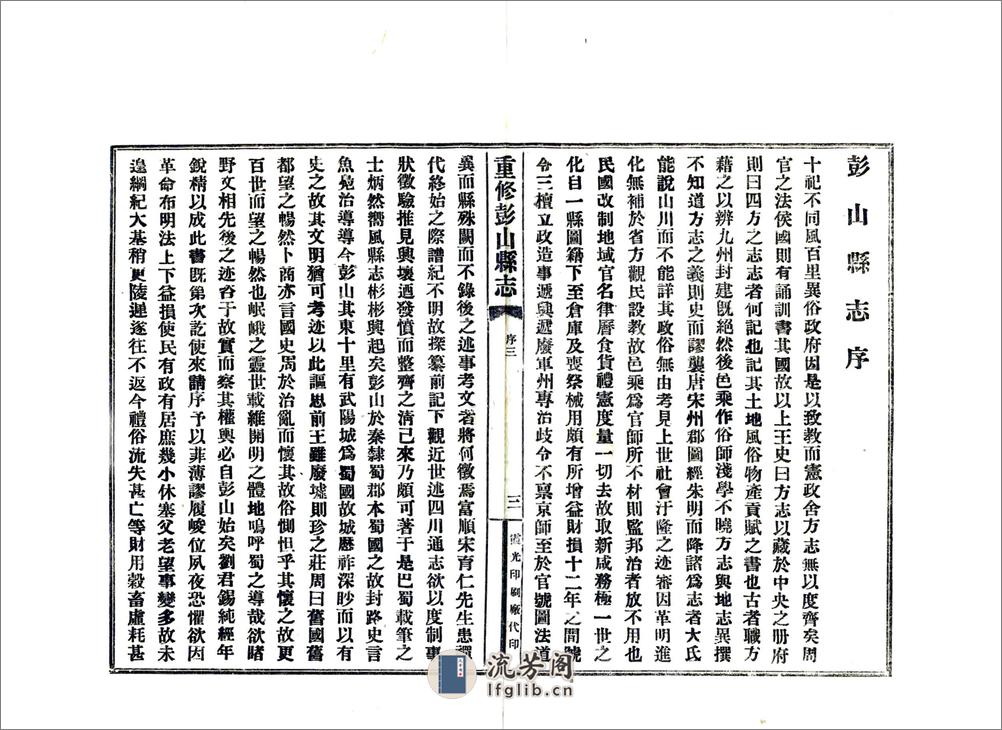 彭山縣志序
十祀不同風百里異俗政府因是以致教而憲政舍方志無以度齊矣周
官之法侯國則有誦訓書其國故以上王史曰方志以藏於中央之册府
則曰四方之志志者何記也記其土地風俗物產貢賦之書也古者職方
藉之以辨九州封建旣絕然後邑乘作俗師淺學不曉方志與地志異撰
不知道方志之義則史而謬襲唐宋州郡圖經朱明而降諸爲志者大氐
能說山川而不能詳其政俗無由考見上世社會汙隆之迹審因革明進
化無補於省方觀民設教故邑乘爲官師所不材則監邦治者放不用也
民國改制地域官名律曆食貨禮憲度量一切去故取新咸務極一世之
化自一縣圖籍下至倉庫及喪祭械用頗有所增益財損十二年之間號
令三檀立政造事遞興遞廢軍州專治歧令不稟京師至於官號圖法道
重修彭山縣志
序三
三
霞光印刷廠代印
異而縣殊闕而不錄後之述事考文者將何徵焉富順宋育仁先生患禪
代終始之際譜紀不明故探纂前記下觀近世述四川通志欲以度制事
狀徵驗推見興壞迺發憤而整齊之淸己來乃頗可著于是巴蜀載筆之
士炳然嚮風縣志彬彬興起矣彭山於秦隸蜀郡本蜀國之故封路史言
魚鳧治導導今彭山其東十里有武陽城爲蜀國故城歷祚深眇而以有
史之故其文明猶可考迹以此謳思前王雖廢墟則珍之莊周曰舊國舊
都望之暢然卜商亦言國史焉於治亂而懷其故俗惻怛乎其懷之故更
百世而望之暢然也岷峨之靈世載維開明之體地嗚呼蜀之導哉欲睹
野文相先後之迹沓于故實而察其權輿必自彭山始矣劉君錫純經年
銳精以成此書旣第次訖使來請序予以菲薄謬履峻位夙夜恐懼欲因
革命布明法上下益損使民有政有居庶幾小休塞父老望事變多故未
遑綱紀大基稍更陵遲遂往不返今禮俗流失甚亡等財用穀畜虛耗甚
流芳阁
lfglib.cn